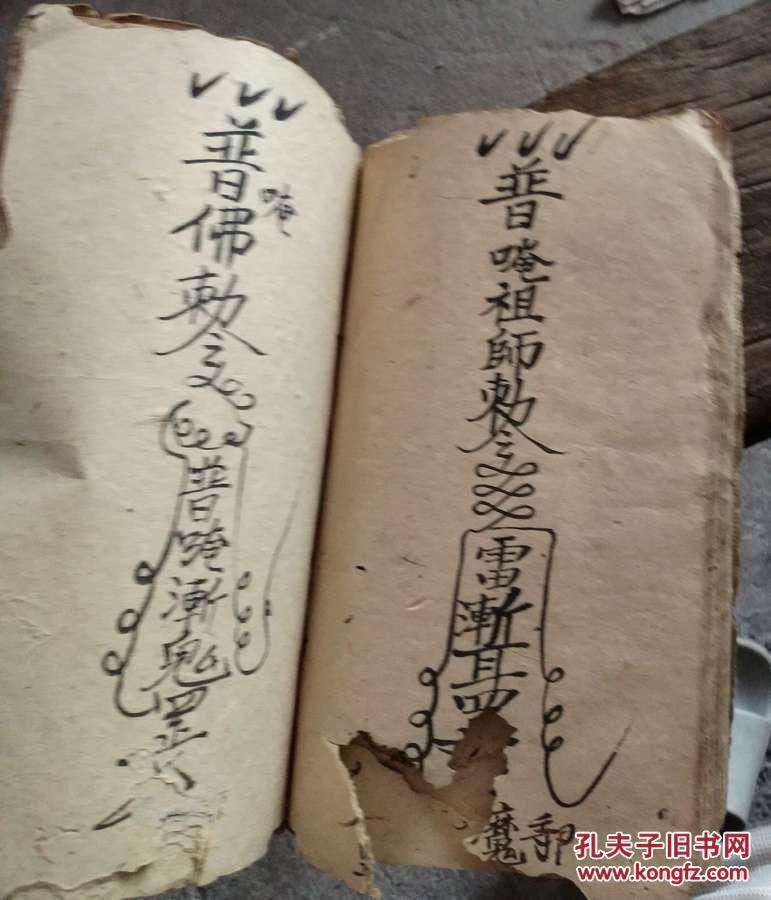 普唵祖師敕令
雷漸耳
魔
普佛敕令
唵
普唵漸鬼罡
孔夫子旧书网
www.kongfz.com